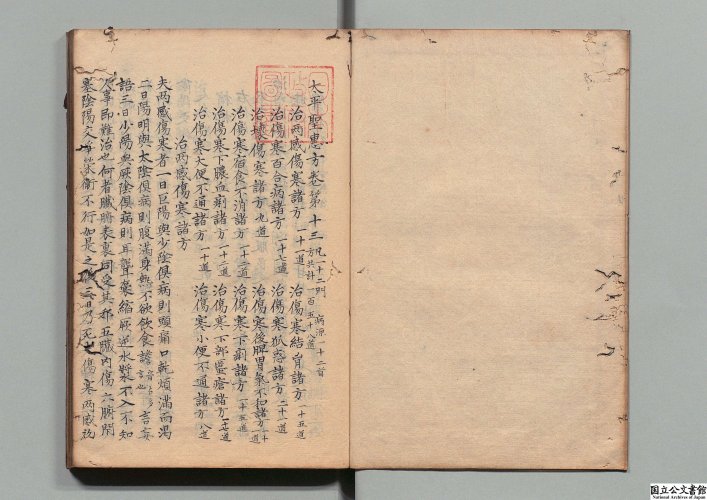 太平聖惠方卷第十三 凡一十二門 病源一十二首 方共計一百五十八道
治兩感傷寒諸方 一十一道 治傷寒結胷諸方 一十五道
治傷寒百合病諸方 一十七道 治傷寒狐惑諸方 二十一道
治壞傷寒諸方 九道 治傷寒後脾胃氣不和諸方 一十一道
治傷寒宿食不消諸方 一十二道 治傷寒下痢諸方 一十五道
治傷寒下膿血痢諸方 一十二道 治傷寒下部䘌瘡諸方
治傷寒大便不通諸方 一十道 治傷寒小便不通諸方 八道
治兩感傷寒諸方
夫兩感傷寒者一日巨陽與少陰俱病則頭痛口乾煩滿而渴
二日陽明與太陰俱病則腹滿身熱不欲飲食譫言妄
語三日少陽與厥陰俱病則耳聾囊縮厥逆水漿不入不知
人事即難治也何者臟腑表裏同受其邪五臟內傷六腑閉
塞陰陽交 榮衛不行如是之 三日乃死 傷寒兩感
国立公文書館
National Archives of Japan